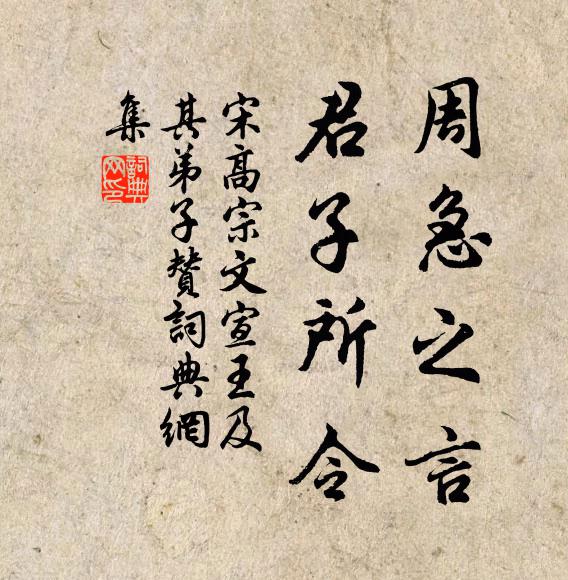 周急之言
君子所令
宋高宗文宣王及
其弟子赞詞典網
集
詞典
网印